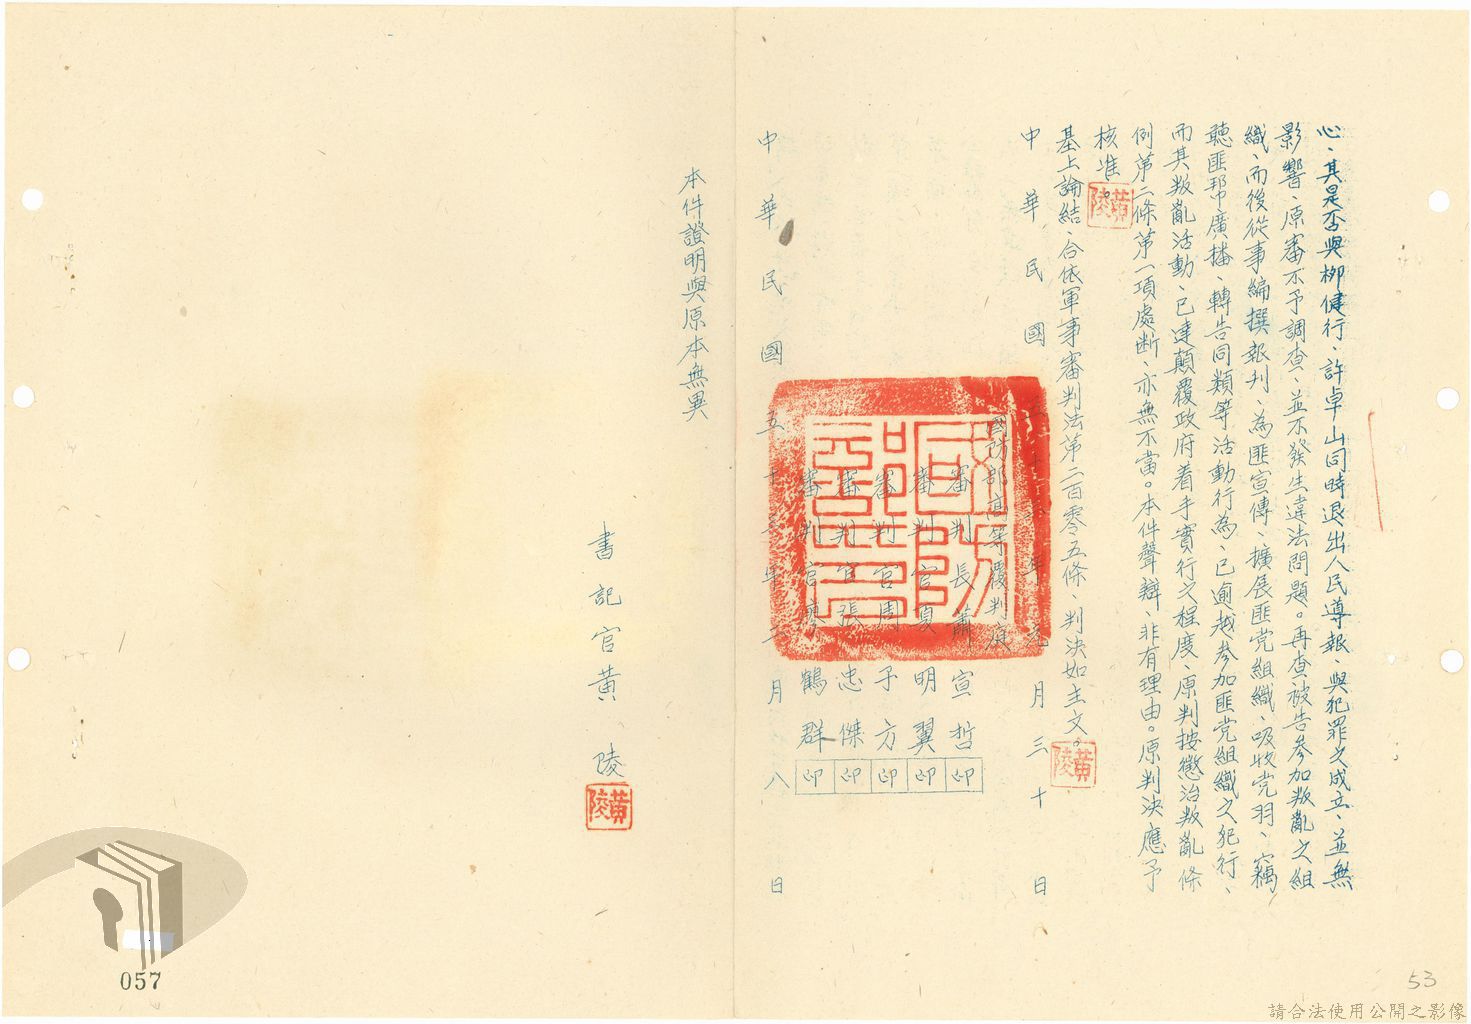 心、其是否與柳健行、許卓山同時退出人民導報、與犯罪之成立、並無
影響、原審不予調查、並不發生違法問題。再查被告參加叛亂之組
織、而後從事編撰報刋、為匪宣傳、擴展匪党組織、吸收党羽、竊
聽匪幇廣播、轉告同類等活動行為、已逾越參加匪党組織之犯行、
而其叛亂活動、已達顛覆政府着手實行之程度、原判按懲治叛亂條
例第二條第一項處断、亦無不當。本件聲辯、非有理由。原判决應予
核准。
黃陵
基上論結、合依軍事審判法第二百零五條、判决如主文。
黃陵
中華民國五十三年元月三十日
國防部高等覆判庭
審判長蕭宣哲印
審判官夏明翼印
審判官周子方印
審判官張忠傑印
審判官廖鶴群印
中華民國五十三年二月八日
本件證明與原本無異
書記官黃陵
黃陵
057
53
請合法使用公開之影像